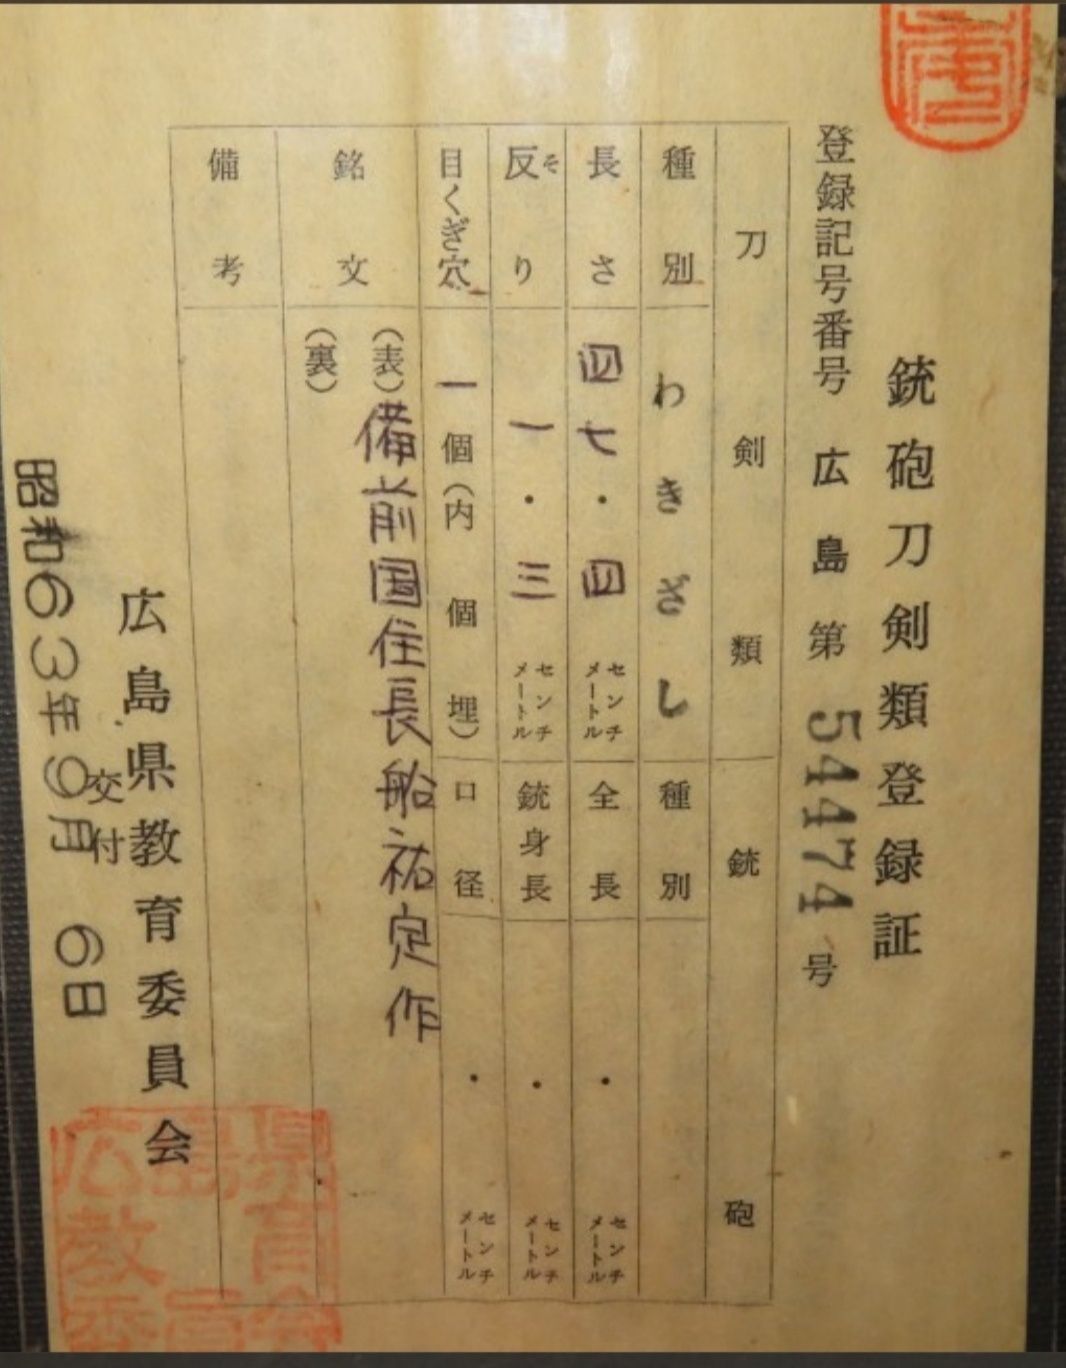 銃砲刀剣類登録証
登録記号番号 広島第 54474 号
刀剣類
銃砲
種別
わきざし
種別
長さ
四七・四
センチメートル
全長
・
センチメートル
反り
そ
一・三
センチメートル
銃身長
・
センチメートル
目くぎ穴
一個(内 個埋)
口径
・
センチメートル
銘文
(表)備前国住長船祐定作
(裏)
備考
広島県教育委員会
昭和63年9月 6日
交付
広島県教育委員会